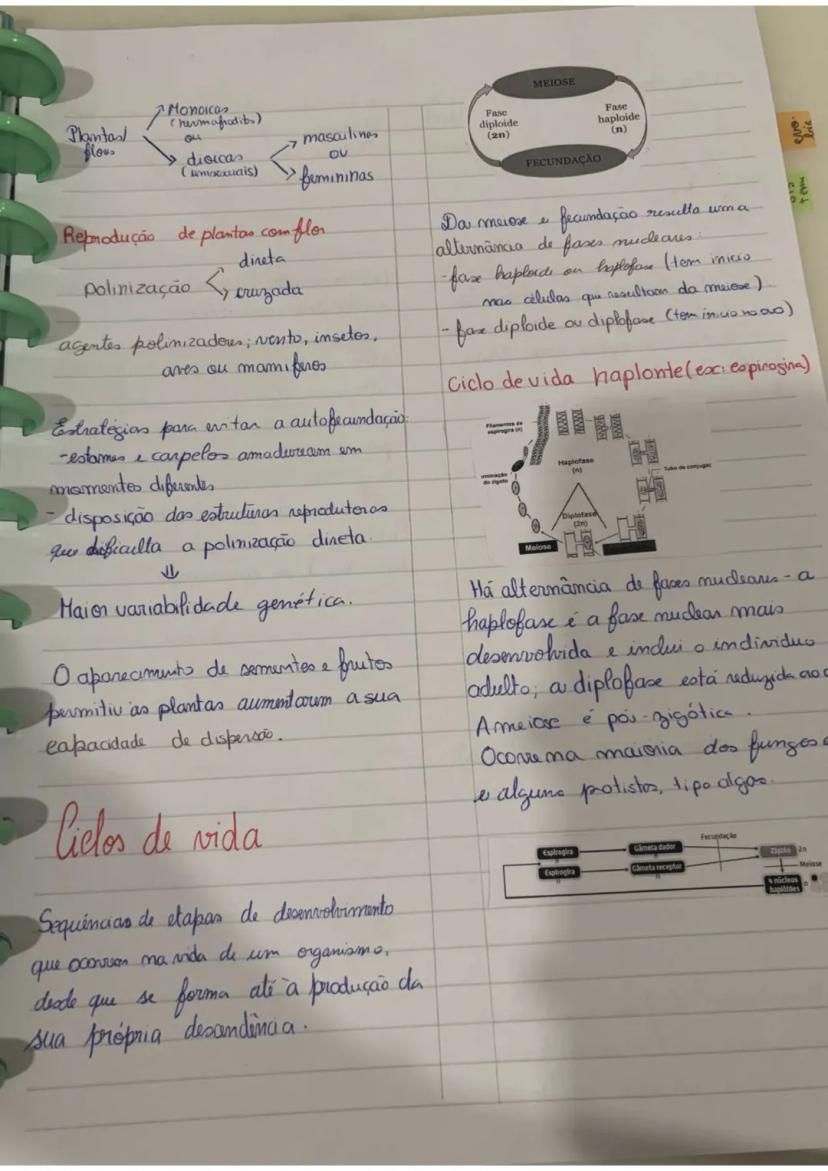 Plantas/
flores
Monoicas
(hermafroditos)
ou
dioicas
(unisexuais)
masculinas
ou
femininas
Reprodução de plantas com flor
polinização
direta
cruzada
agentes polinizadores; vento, insetos,
aves ou mamiferos
Estratégias para evitar a autofecundação:
-estames e carpelos amadurecem em
momentos diferentes
- disposição das estruturas reprodutoras
que dificulta a polinização direta.
⇓
Maior variabilidade genética.
O aparecimento de sementes e frutos
permitiu às plantas aumentarem a sua
capacidade de dispersão.
Ciclos de vida
Sequências de etapas de desenvolvimento
que ocorrem na vida de um organismo,
desde que se forma até à produção da
sua própria descendência.
MEIOSE
Fase
diploide
(2n)
Fase
haploide
(n)
FECUNDAÇÃO
Da meiose e fecundação resulta uma
alternância de fases nucleares:
-fase haploide ou haplofase (tem inicio
nas células que resultam da meiose)
- fase diploide ou diplofase (tem inicio no ovo)
Ciclo de vida haplonte (ex: espirogira)
Filamentos de
espirogira (n)
do zigoto
Haplofase
(n)
Tubo de conjugaç
Diplofase
(2n)
Meiose
Há alternância de fases nucleares - a
haplofase é a fase nuclear mais
desenvolvida e inclui o individuo
adulto; a diplofase está reduzida ao
A meiose é pós-zigótica.
Ocorre na maioria dos fungos
e alguns protistas, tipo algas.
Espirogira
Gâmeta dador
Fecundação
Zigoto 2n
Espirogira
n
Gâmeta receptor
n
Meiose
4 núcleos
haplóides n
evo-